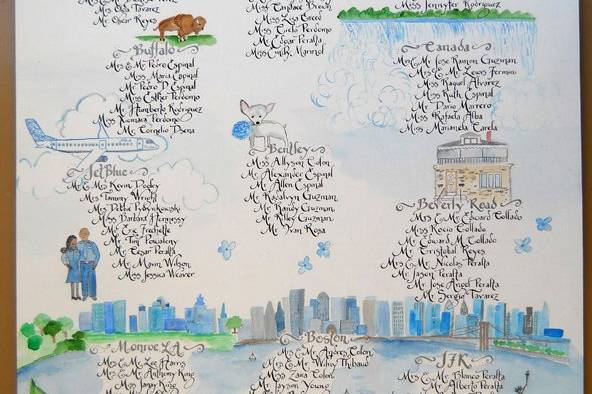 Tavarez
Mr. Omar Reyes
Miss Candace Brown
Miss Lisa Creed
Miss Cielo Perdomo
Mr. Edgar Peralta
Miss Emily Marmol
Miss Jennyfer Rodriguez
Buffalo
Mrs & Mr. Pedro Espinal
Miss Maria Espinal
Mr. Pedro D. Espinal
Miss Esther Perdomo
Mr. Humberto Rodriguez
Miss Xiomara Perdomo
Mr. Cornelio Disena
Canada
Mrs & Mr. Jose Ramon Guzman
Mrs & Mr. Lewis Fermin
Miss Raquel Alvarez
Miss Ruth Espinal
Mr. Dario Marrero
Miss Rafaela Alba
Miss Marianela Carela
JetBlue
Mrs & Mr. Kevin Dooley
Mrs Tammy Wright
Mrs Debbe
Miss Barbara Hennessy
Mr. Eric Frechette
Mr. Tim Powaleny
Mr. Cesar Peralta
Mr. Mavin Wilson
Miss Jessica Weaver
Bentley
Miss Allyson Colon
Mr. Alexander Espinal
Mr. Allen Espinal
Mr. Randy Guzman
Mr. Riley Guzman
Mr. Ivan Rosa
Beverly Road
Mrs & Mr. Edward Collado
Miss Rocio Collado
Mr. Edward M. Collado
Mr. Cristobal Reyes
Mrs & Mr. Nicolas Peralta
Mr. Jason Peralta
Mr. Jose Angel Peralta
Mr. Sergio Tavarez
Monroe LA
Mrs & Mr. Lee Harris
Mrs & Mr. Anthony King
Miss King
Boston
Mrs & Mr. Andres Colon
Mrs & Mr. Wilny Thebaud
Miss Zana Colon
Mr. Jayson Young
JFK
Mrs & Mr. Blanco Peralta
Mr. Alberto Peralta